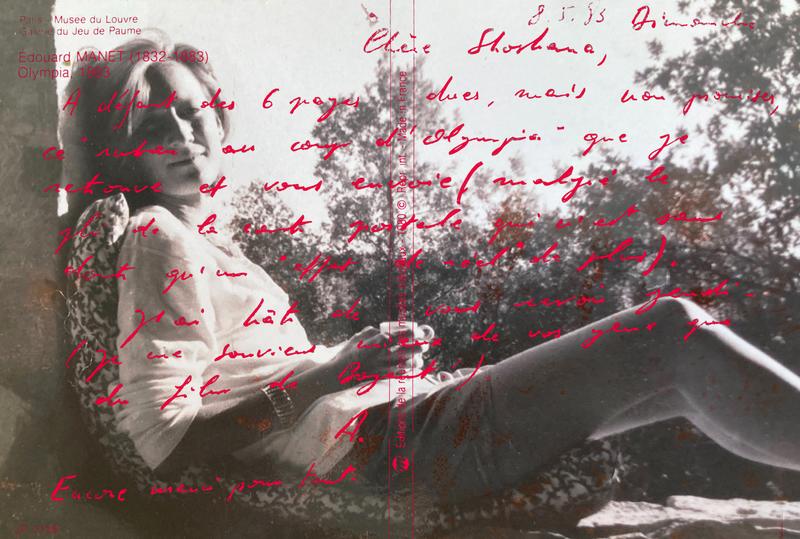 Paris - Musée du Louvre
Galerie du Jeu de Paume
Édouard MANET (1832-1883)
Olympia, 1863
8.5.83 Dimanche
Chère Shoshana,
A défaut des 6 pages dues, mais non promises,
ce "ruban au cou" d'"Olympia" que je
retrouve et vous envoie (malgré le
pli de la carte postale qui n'est sans
doute qu'un "effet de réel" de plus).
J'ai hâte de vous revoir jeudi.
(Je me souviens mieux de vos yeux que
du film de !)
A.
Encore merci pour tout.
Made in France